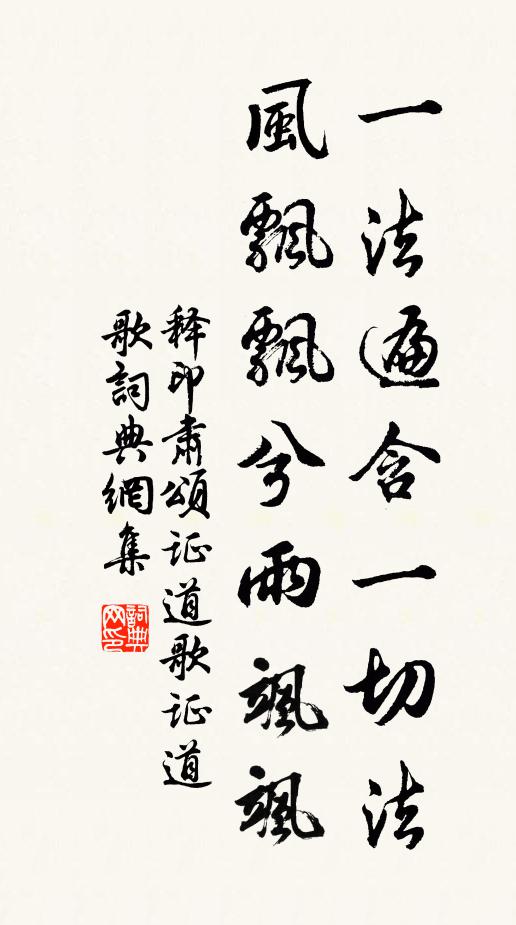 一法遍含一切法
風飄飄兮雨颯颯
释印肅頌证道歌证道
歌詞典網集
詞典网印